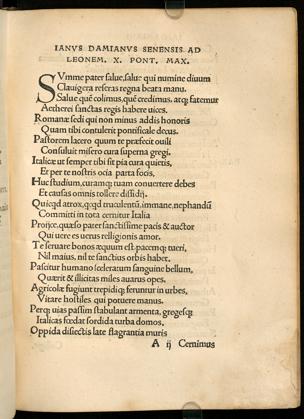 IANVS DAMIANVS SENENSIS AD
LEONEM. X. PONT. MAX.
SVmme pater salue, salue qui numine diuum
Clauigera reseras regna beata manu.
Salue quē colimus, quē credimus, atq; fatemur
Aetherei sanctas regis habere uices.
Romanæ sedi qui non minus addis honoris
Quam tibi contulerit pontificale decus.
Pastorem lacero quum te præfecit ouili
Consuluit misero cura superna gregi.
Italicæ ut semper tibi sit pia cura quietis,
Et per te nostris ocia parta focis,
Huc studium, curamq; tuam conuertere debes
Et causas omnis tollere dissidij.
Quicqd atrox, qcqd truculentū, immane, nephandū
Committi in tota cernitur Italia
Proijce, quæso pater sanctissime pacis & auctor
Qui uere es uerus relligionis amor.
Te seruare bonos æquum est, pacemq; tueri,
Nil maius, nil te sanctius orbis habet.
Pascitur humano sceleratum sanguine bellum,
Quærit & illicitas miles auarus opes.
Agricolæ fugiunt trepidiq; feruntur in urbes,
Vitare hostiles qui potuere manus.
Perq; uias passim stabulant armenta, gregesq;
Italicas fœdat sordida turba domos,
Oppida disiectis late flagrantia muris
A ij Cernimus